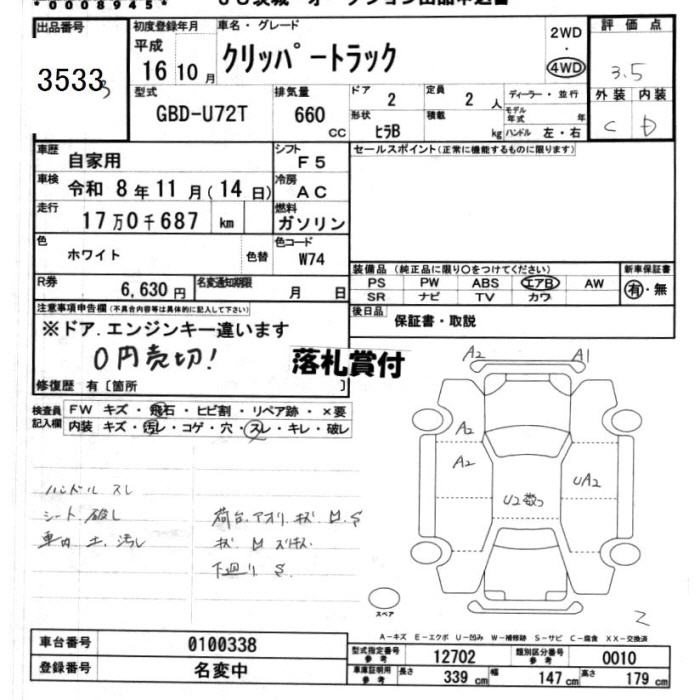 *0008945*
JU茨城 オークション出品申込書
出品番号
3533
初度登録年月
平成
16年10月
車名・グレード
クリッパートラック
2WD
・
4WD
評価点
3.5
型式
GBD-U72T
排気量
660 CC
ドア 2
定員 2 人
形状 ヒラB
積載 kg
ディーラー・並行
モデル年式 年
ハンドル 左・右
外装 内装
C D
車歴 自家用
シフト F5
セールスポイント(正常に機能するものに限ります)
車検 令和 8年11月(14日)
冷房 AC
走行 17万0千687 km
燃料 ガソリン
色 ホワイト 色替
色コード W74
装備品 (純正品に限り○をつけてください)
PS PW ABS エアB AW
SR ナビ TV カワ
新車保証書
有・無
R券 6,630円
名変通知期限 月 日
後日品 保証書・取説
注意事項申告欄(不具合内容等は具体的に記入して下さい)
※ドア.エンジンキー違います
0円売切!
落札賞付
修復歴 有〔箇所 〕
検査員記入欄
FW キズ・飛石・ヒビ割・リペア跡・×要
内装 キズ・汚レ・コゲ・穴・スレ・キレ・破レ
ハンドル スレ
シート 破レ
車内 土、汚レ
荷台、アオリ キズ M.S
キズ M
下廻り S
A2 A1
A2
A2
UA2
U2数つ
スペア
2
A-キズ E-エクボ U-凹み W-補修跡 S-サビ C-腐食 XX-交換済
車台番号 0100338
登録番号 名変中
型式指定番号 参考 12702
類別区分番号 参考 0010
車庫証明用 参考
長さ 339 cm 幅 147 cm 高さ 179 cm